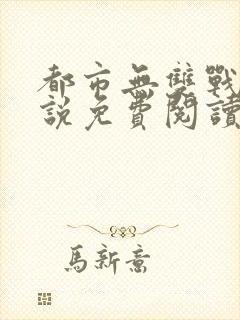 都市無雙戰
說免費閱讀
馬新意